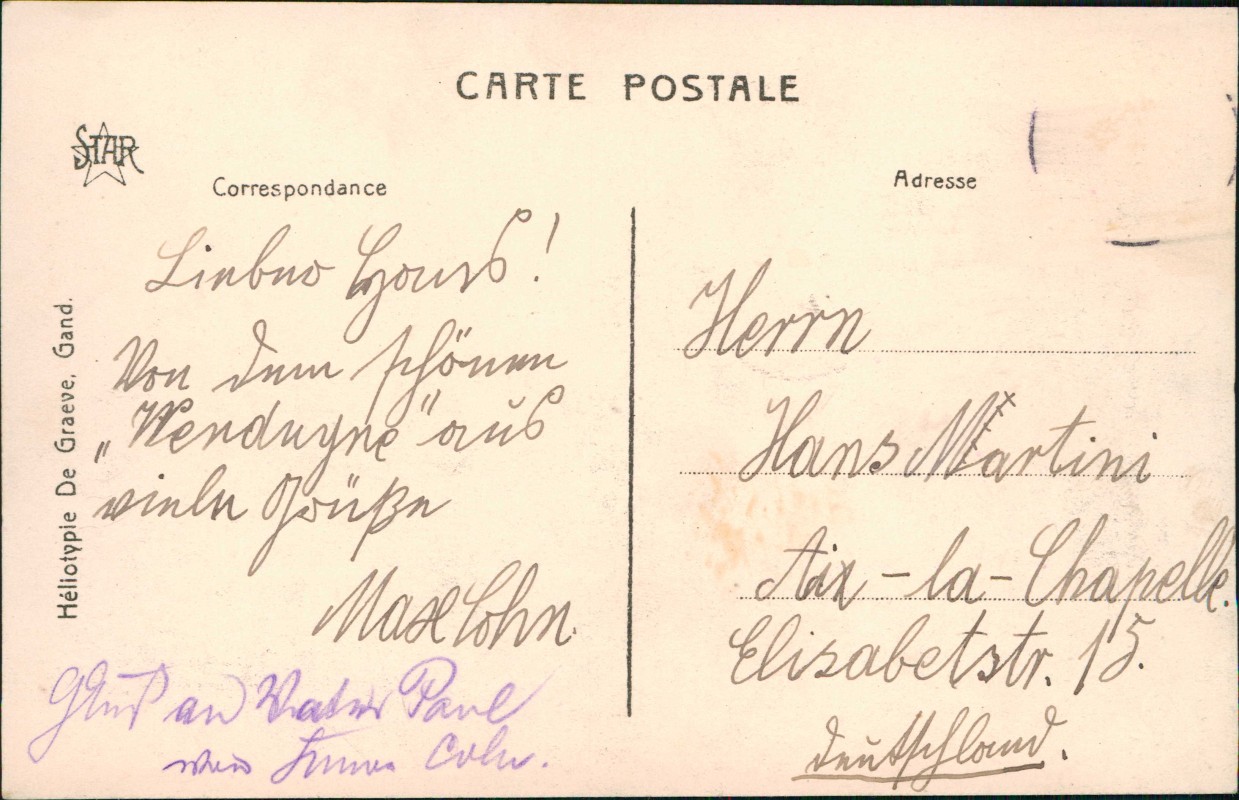 CARTE POSTALE
STAR
Correspondance
Adresse
Héliotypie De Graeve, Gand.
Lieber Hans!
Von dem schönen
„Wenduyne" aus
viele Grüße
Max Cohn.
Gruß an Vater Paul
Cohn.
Herrn
Hans Martini
Aix-la-Chapelle.
Elisabetstr. 15.
Deutschland.